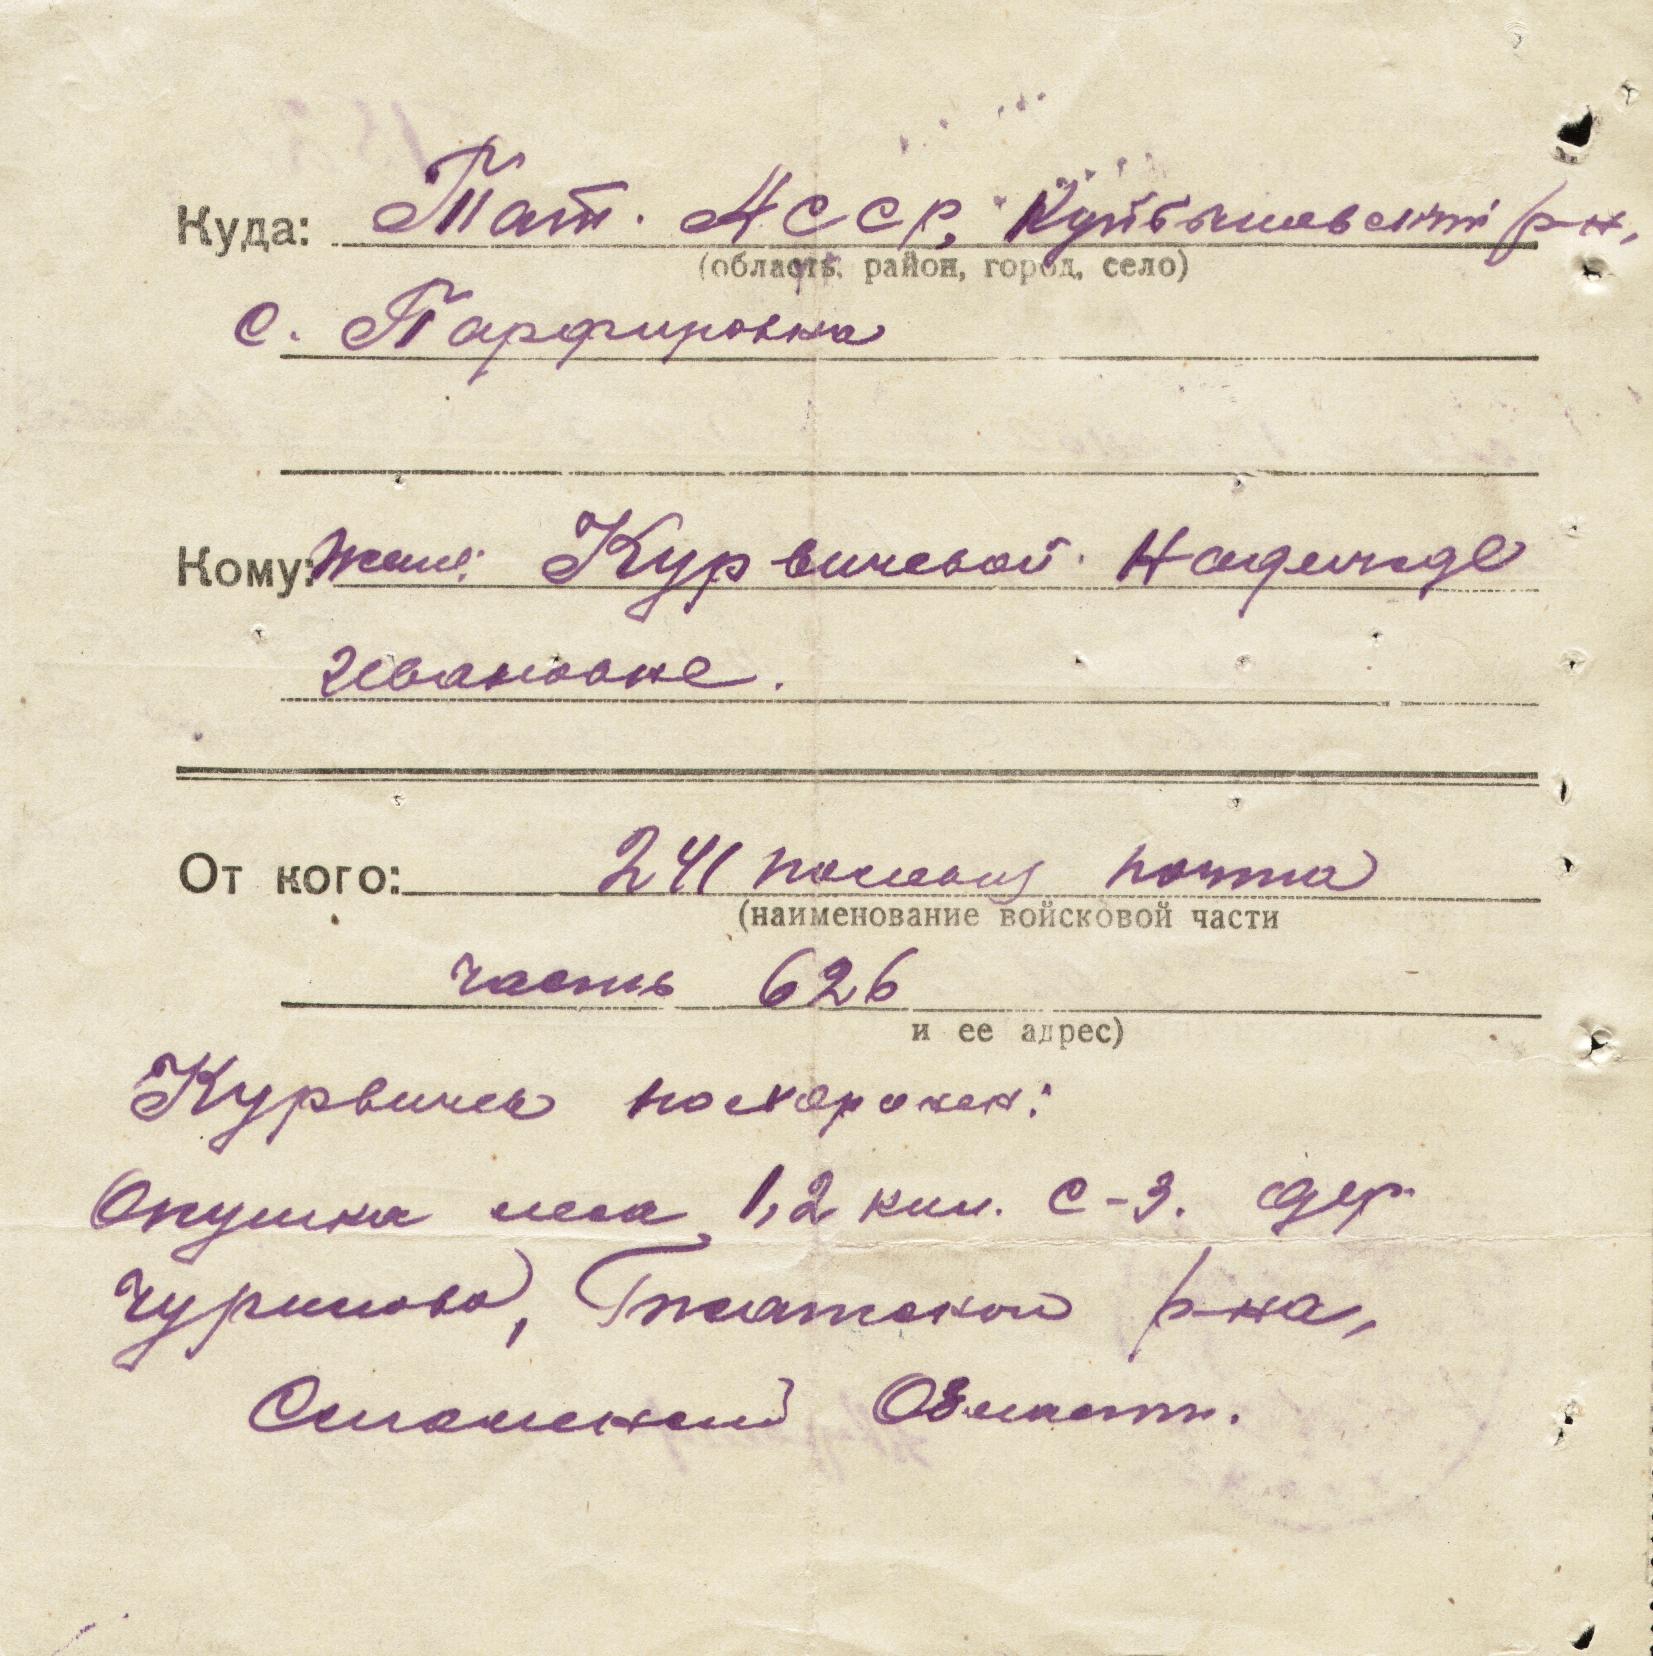 Куда: Тат. АССР, Куйбышевский р-н,
(область, район, город, село)
с. Парфировка
Кому: Жене: Курвичевой Надежде
Ивановне.
От кого: 241 полевая почта
(наименование войсковой части
часть 626
и ее адрес)
Курвичев похоронен:
Опушка леса 1,2 кил. С-З. дер
Чурилово, Гжатской р-на,
Смоленской Области.